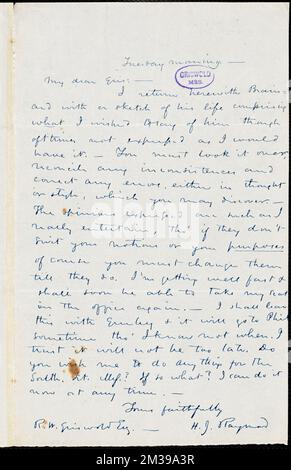 Tuesday morning —
GRISWOLD
MSS.
My dear Gris: —
I return herewith
and with a sketch of his life comprising
what I wished to say of him though
often times not expressed as I would
have it. — You must look it over,
reconcile any inconsistencies and
correct any errors, either in thought
or style, which you may discover —
The opinions expressed are such as I
really entertain, tho' if they don't
suit your notions or your purposes
of course you must change them
till they do. I'm getting well fast &
shall soon be able to take my seat
in the office again. — I shall leave
this with & it will go to Phil
sometime tho' I know not when. I
trust it will not be too late. Do
you wish me to do any thing for the
South. If so what? I can do it
now at any time. —
Yours faithfully
R. W. Griswold Esq. — H. J. Raymond
alamy
Image ID: 2WG39A3R
www.alamy.com